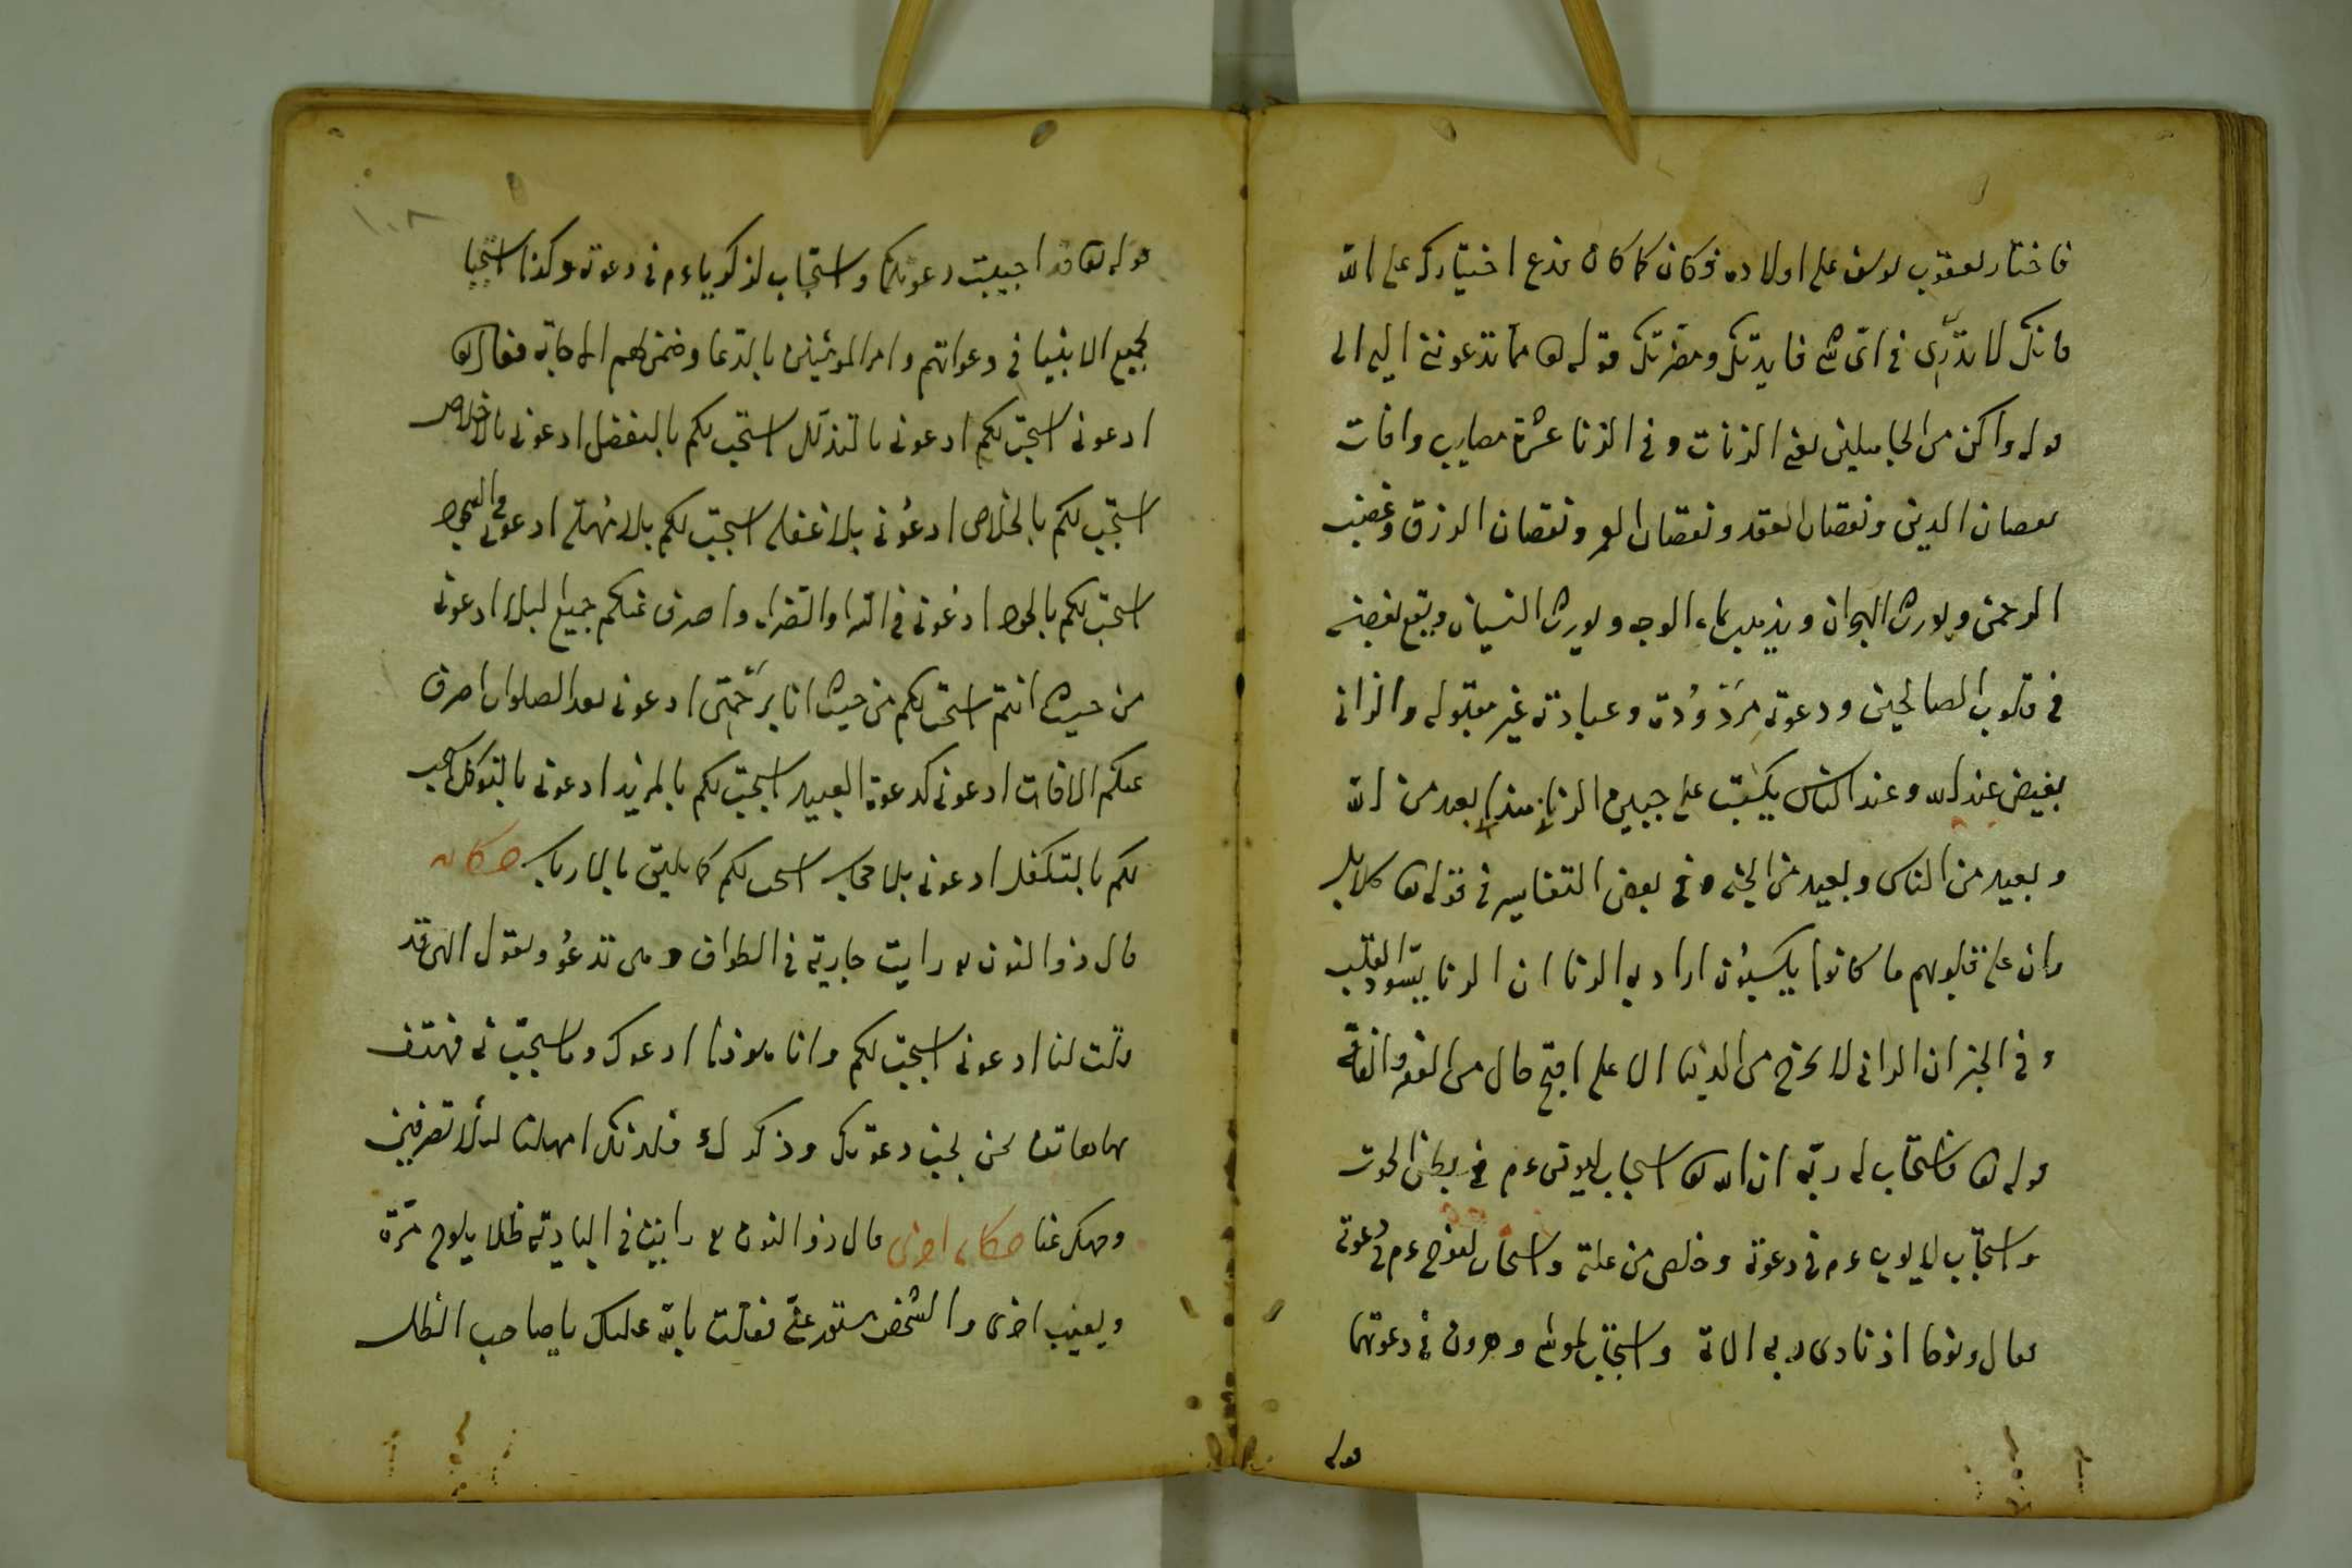 فاختار يعقوب يوسف على اولاده فكان كما كان فدع اختيارك على الله
فانك لا تدري في اي شي فايدتك ومضرتك قوله تعا مما تدعونني اليه الى
قوله واكن من الجاهلين يعني الزنات وفي الزنا عشرة مصايب وافات
نقصان الدين ونقصان العقل ونقصان العمر ونقصان الرزق وغضب
الرحمن ويورث الهجران ويذهب بماء الوجه ويورث النسيان ويقع بغضه
في قلوب الصالحين ودعوته مردودة وعبادته غير مقبوله والزاني
بغيض عند الله وعند الناس يكتب على جبين الزناة هذا بعيد من الله
وبعيد من الناس وبعيد من الجنه وفي بعض التفاسير في قوله تعا كلا بل
ران على قلوبهم ما كانوا يكسبون اراد به الزنا ان الزنا يسود القلب
وفي الخبر ان الزاني لا يخرج من الدنيا الا على اقبح حال من الفقر والفاقة
قوله تعا فاستجاب له ربه ان الله تعا استجاب ليونس ءم في بطن الحوت
واستجاب لايوب ءم في دعوته وخلص من علته واستجاب لنوح ءم في دعوته
فقال ونوحا اذ نادى ربه الاية واستجاب لموسى وهرون في دعوتهما
قوله
١٠٨
قوله تعا قد اجيبت دعوتكما واستجاب لزكرياءم في دعوته وكذا استجابا
لجميع الانبيا في دعواتهم وامر المومنين بالدعا وضمن لهم الاجابة فقال تعا
ادعوني استجب لكم ادعوني بالتذلل استجب لكم بالتفضل ادعوني بالاخلاص
استجب لكم بالخلاص ادعوني بلا غفلة استجب لكم بلا مهلة ادعوني
استجب لكم ادعوني في السرا والضراء واصرف عنكم جميع البلاء ادعوني
من حيث انتم استجب لكم من حيث انا برحمتي ادعوني بعد الصلوات اصرف
عنكم الافات ادعوني كدعوة العبيد استجب لكم بالمزيد ادعوني بالتوكل استجب
لكم بالتكفل ادعوني بلا استجب لكم كما يليق حكاية
قال ذو النون ره رايت جارية في الطواف وهي تدعو وتقول الهي قد
قلت لنا ادعوني استجب لكم وانا ادعوك وما استجبت لي فهتف
بها هاتف نحن نحب دعوتك وذكرك فلذلك امهلنا لئلا تصرفين
وجهك عنا حكاية اخرى قال ذو النون ره رايت في البادية ظلا يلوح مرة
ويغيب اخرى والشخص مستور عني فقلت بالله عليك يا صاحب الظل